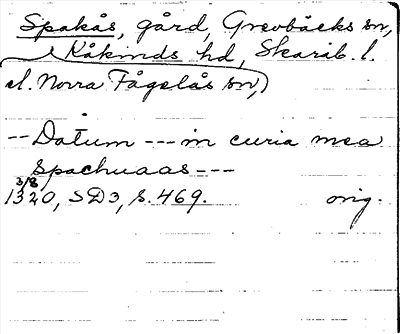 Spakås, gård, Grevbäcks sn,
Kåkinds hd, Skarab. l.
el. Norra Fågelås sn,)
-- Datum --- in curia mea
Spachuaas ---
3/8
1320, SD3, s. 469. orig.